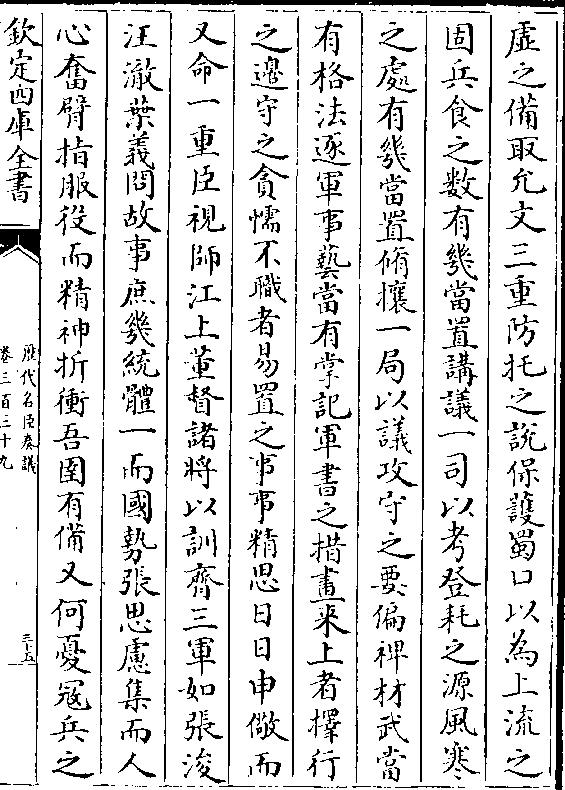 虚之備取允文三重防托之説保䕶蜀口以為上流之
固兵食之數有幾當置講議一司以考登耗之源風寒
之處有幾當置脩攘一局以議攻守之要偏裨材武當
有格法逐軍事藝當有掌記軍書之措畫来上者擇行
之邉守之貪懦不職者易置之事事精思日日申儆而
又命一重臣視師江上董督諸將以訓齊三軍如張浚
汪澈葉義問故事庶幾統體一而國勢張思慮集而人
心奮臂指服役而精神折衝吾圉有備又何憂冦兵之
欽定四庫全書
歴代名臣奏議
卷三百三十九
三十五